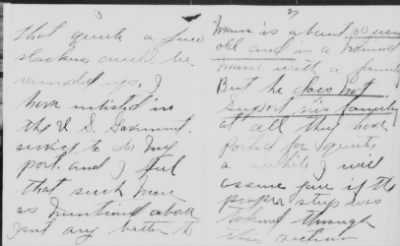 3
that quite a few
slackers could be
rounded up, I
have enlisted in
the U. S. Goverment.
service to do my
part. and I feel
that such men
as mentioned above
isnt any better to
2
man is about 30 years
old and is a married
man with a family
But he does not
support his family
at all they have
for quite
a while I will
assure you if the
proper step was
taken through
this section